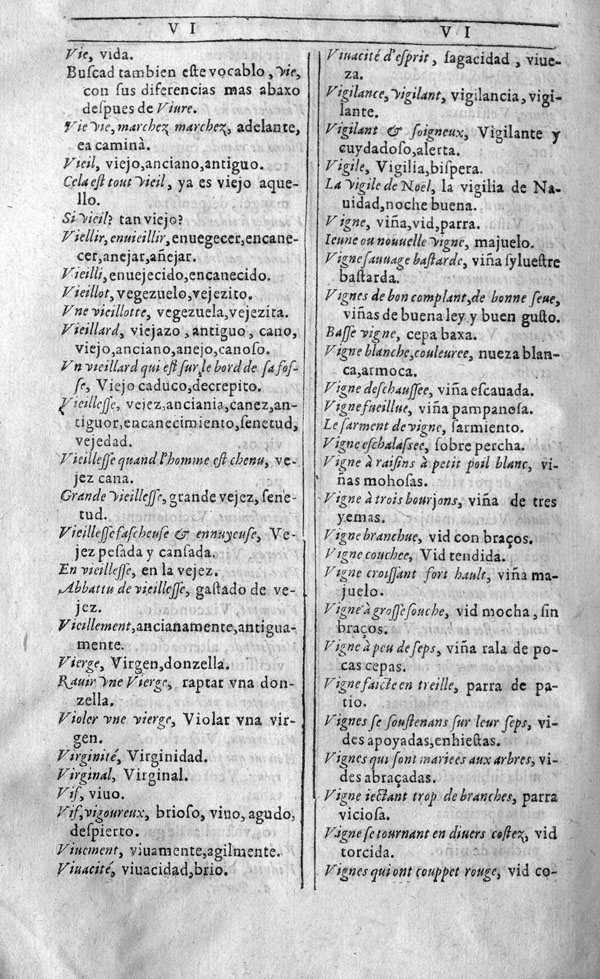 V I
Vie, vida.
Buſcad tambien eſte vocablo, vie,
con sus diferencias mas abaxo
deſpues de Viure.
Vie vie, marchez marchez, adelante,
ea caminà.
Vieil, viejo,anciano,antiguo.
Cela eſt tout vieil, ya es viejo aque-
llo.
Si vieil? tan viejo?
Viellir, enuieillir, enuegecer,encane-
cer,anejar,añejar.
Vieilli, enuejecido,encanecido.
Vieillot, vegezuelo,vejezito.
Vne vieillotte, vegezuela,vejezita.
Vieillard, viejazo, antiguo, cano,
viejo,anciano,anejo,canoſo.
Vn vieillard qui eſt ſur le bord de ſa foſ-
ſe, Viejo caduco,decrepito.
Vieilleſſe, vejez,anciania,canez,an-
tiguor,encanecimiento,ſenetud,
vejedad.
Vieilleſſe quand l'homme eſt chenu, ve-
jez cana.
Grande vieilleſſe, grande vejez, ſene-
tud.
Vieilleſſe faſcheuſe & ennuyeuſe, Ve-
jez peſada y canſada.
En vieilleſſe, en la vejez.
Abbattu de vieilleſſe, gaſtado de ve-
jez.
Vieillement,ancianamente,antigua-
mente.
Vierge, Virgen,donzella.
Rauir vne Vierge, raptar vna don-
zella.
Violer vne vierge, Violar vna vir-
gen.
Virginité, Virginidad.
Virginal, Virginal.
Vif, viuo.
Vif,vigoureux, brioſo, viuo, agudo,
deſpierto.
Viuement, viuamente,agilmente.
Viuacité, viuacidad,brio.
V I
Viuacité d'eſprit, ſagacidad, viue-
za.
Vigilance, vigilant, vigilancia,vigi-
lante.
Vigilant & ſoigneux, Vigilante y
cuydadoſo,alerta.
Vigile, Vigilia,biſpera.
La vigile de Noël, la vigilia de Na-
uidad,noche buena.
Vigne, viña,vid,parra.
Ieune ou nouuelle vigne, majuelo.
Vigne ſauuage baſtarde, viña ſylueſtre
baſtarda.
Vignes de bon complant,de bonne ſeue,
viñas de buena ley y buen guſto.
Baſſe vigne, cepa baxa.
Vigne blanche,couleuree, nueza blan-
ca,armoca.
Vigne deſchauſſee, viña eſcauada.
Vigne fueillue, viña pampanoſa.
Le ſarment de vigne, ſarmiento.
Vigne eſchalaſſee, ſobre percha.
Vigne à raiſins à petit poil blanc, vi-
ñas mohoſas.
Vigne à trois bourjons, viña de tres
yemas.
Vigne branchue, vid con braços.
Vigne couchee, Vid tendida.
Vigne croiſſant fort hault, viña ma-
juelo.
Vigne à groſſe ſouche, vid mocha, ſin
braços.
Vigne à peu de ſeps, viña rala de po-
cas cepas.
Vigne faicte en treille, parra de pa-
tio.
Vignes ſe ſouſtenans ſur leur ſeps, vi-
des apoyadas,enhieſtas.
Vignes qui ſont mariees aux arbres, vi-
des abraçadas.
Vigne iectant trop de branches, parra
vicioſa.
Vigne ſe tournant en diuers coſtez, vid
torcida.
Vignes qui ont couppet rouge, vid co-